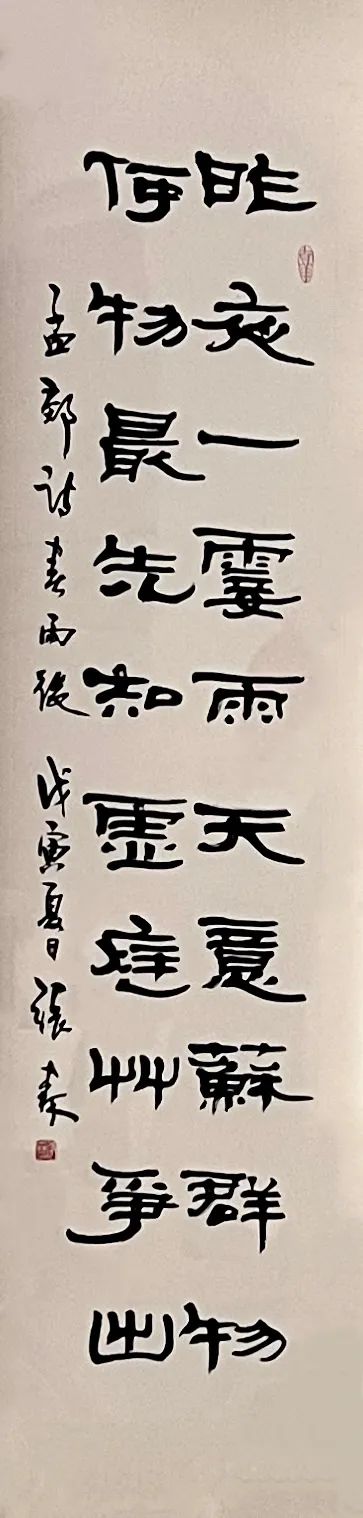 昨夜一霎雨天意蘇群物
何物最先知虛庭艸爭出
孟郊诗春雨後 戊寅夏日 張